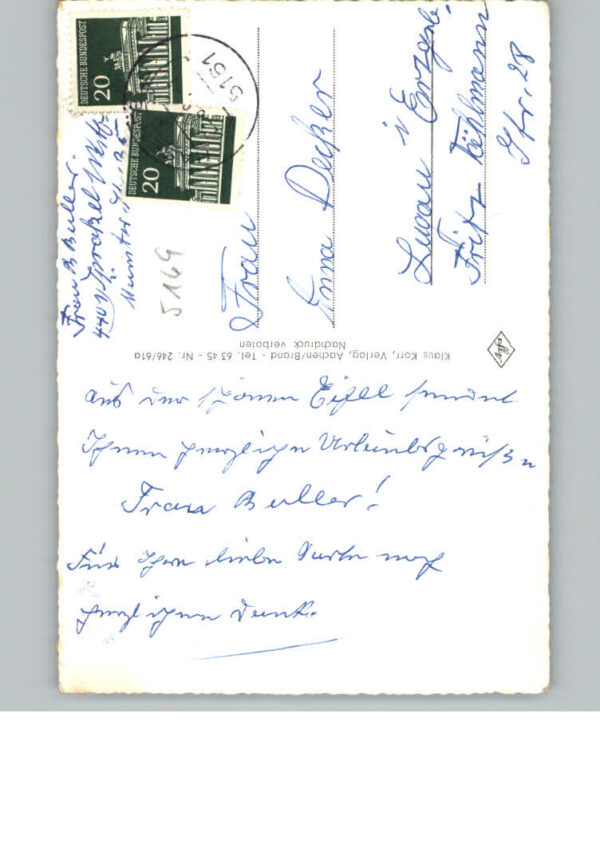 DEUTSCHE BUNDESPOST
20
DEUTSCHE BUNDESPOST
20
5151
Frau B Buller.
4401 Sprakel
Münster
5169
Frau
Anna Decker
Lugau i Erzgeb.
Fritz
Str. 28
Klaus Korr, Verlag, Aachen/Brand - Tel. 63 45 - Nr. 246/61a
Nachdruck verboten
aus der schönen Eifel sendet
Ihnen herzliche Urlaubsgrüße
Frau Buller!
Für Ihre liebe Karte noch
herzlichen Dank.